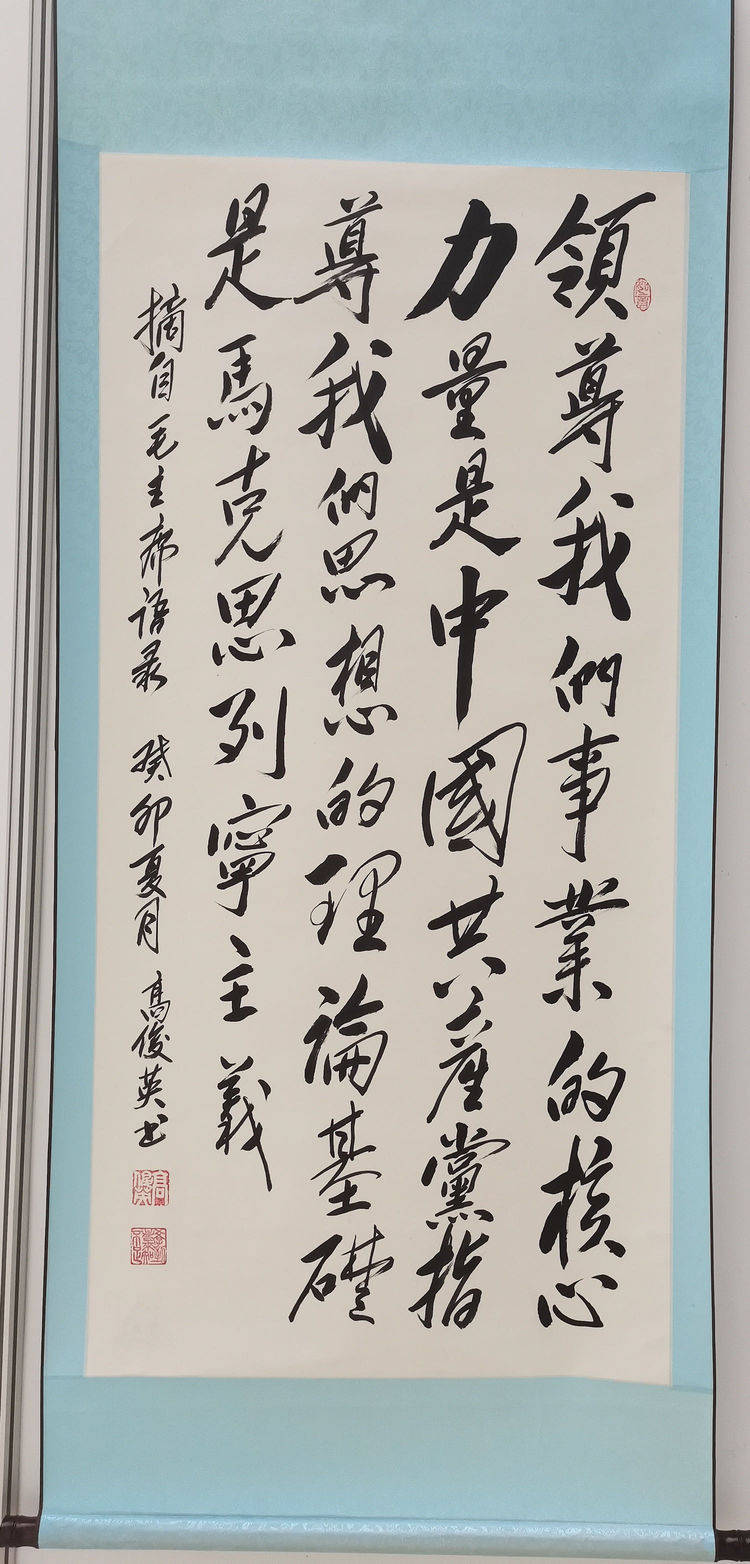 領導我們事業的核心
力量是中國共產黨指
導我們思想的理論基礎
是馬克思列寧主義
摘自毛主席语录 癸卯夏月 高俊英书